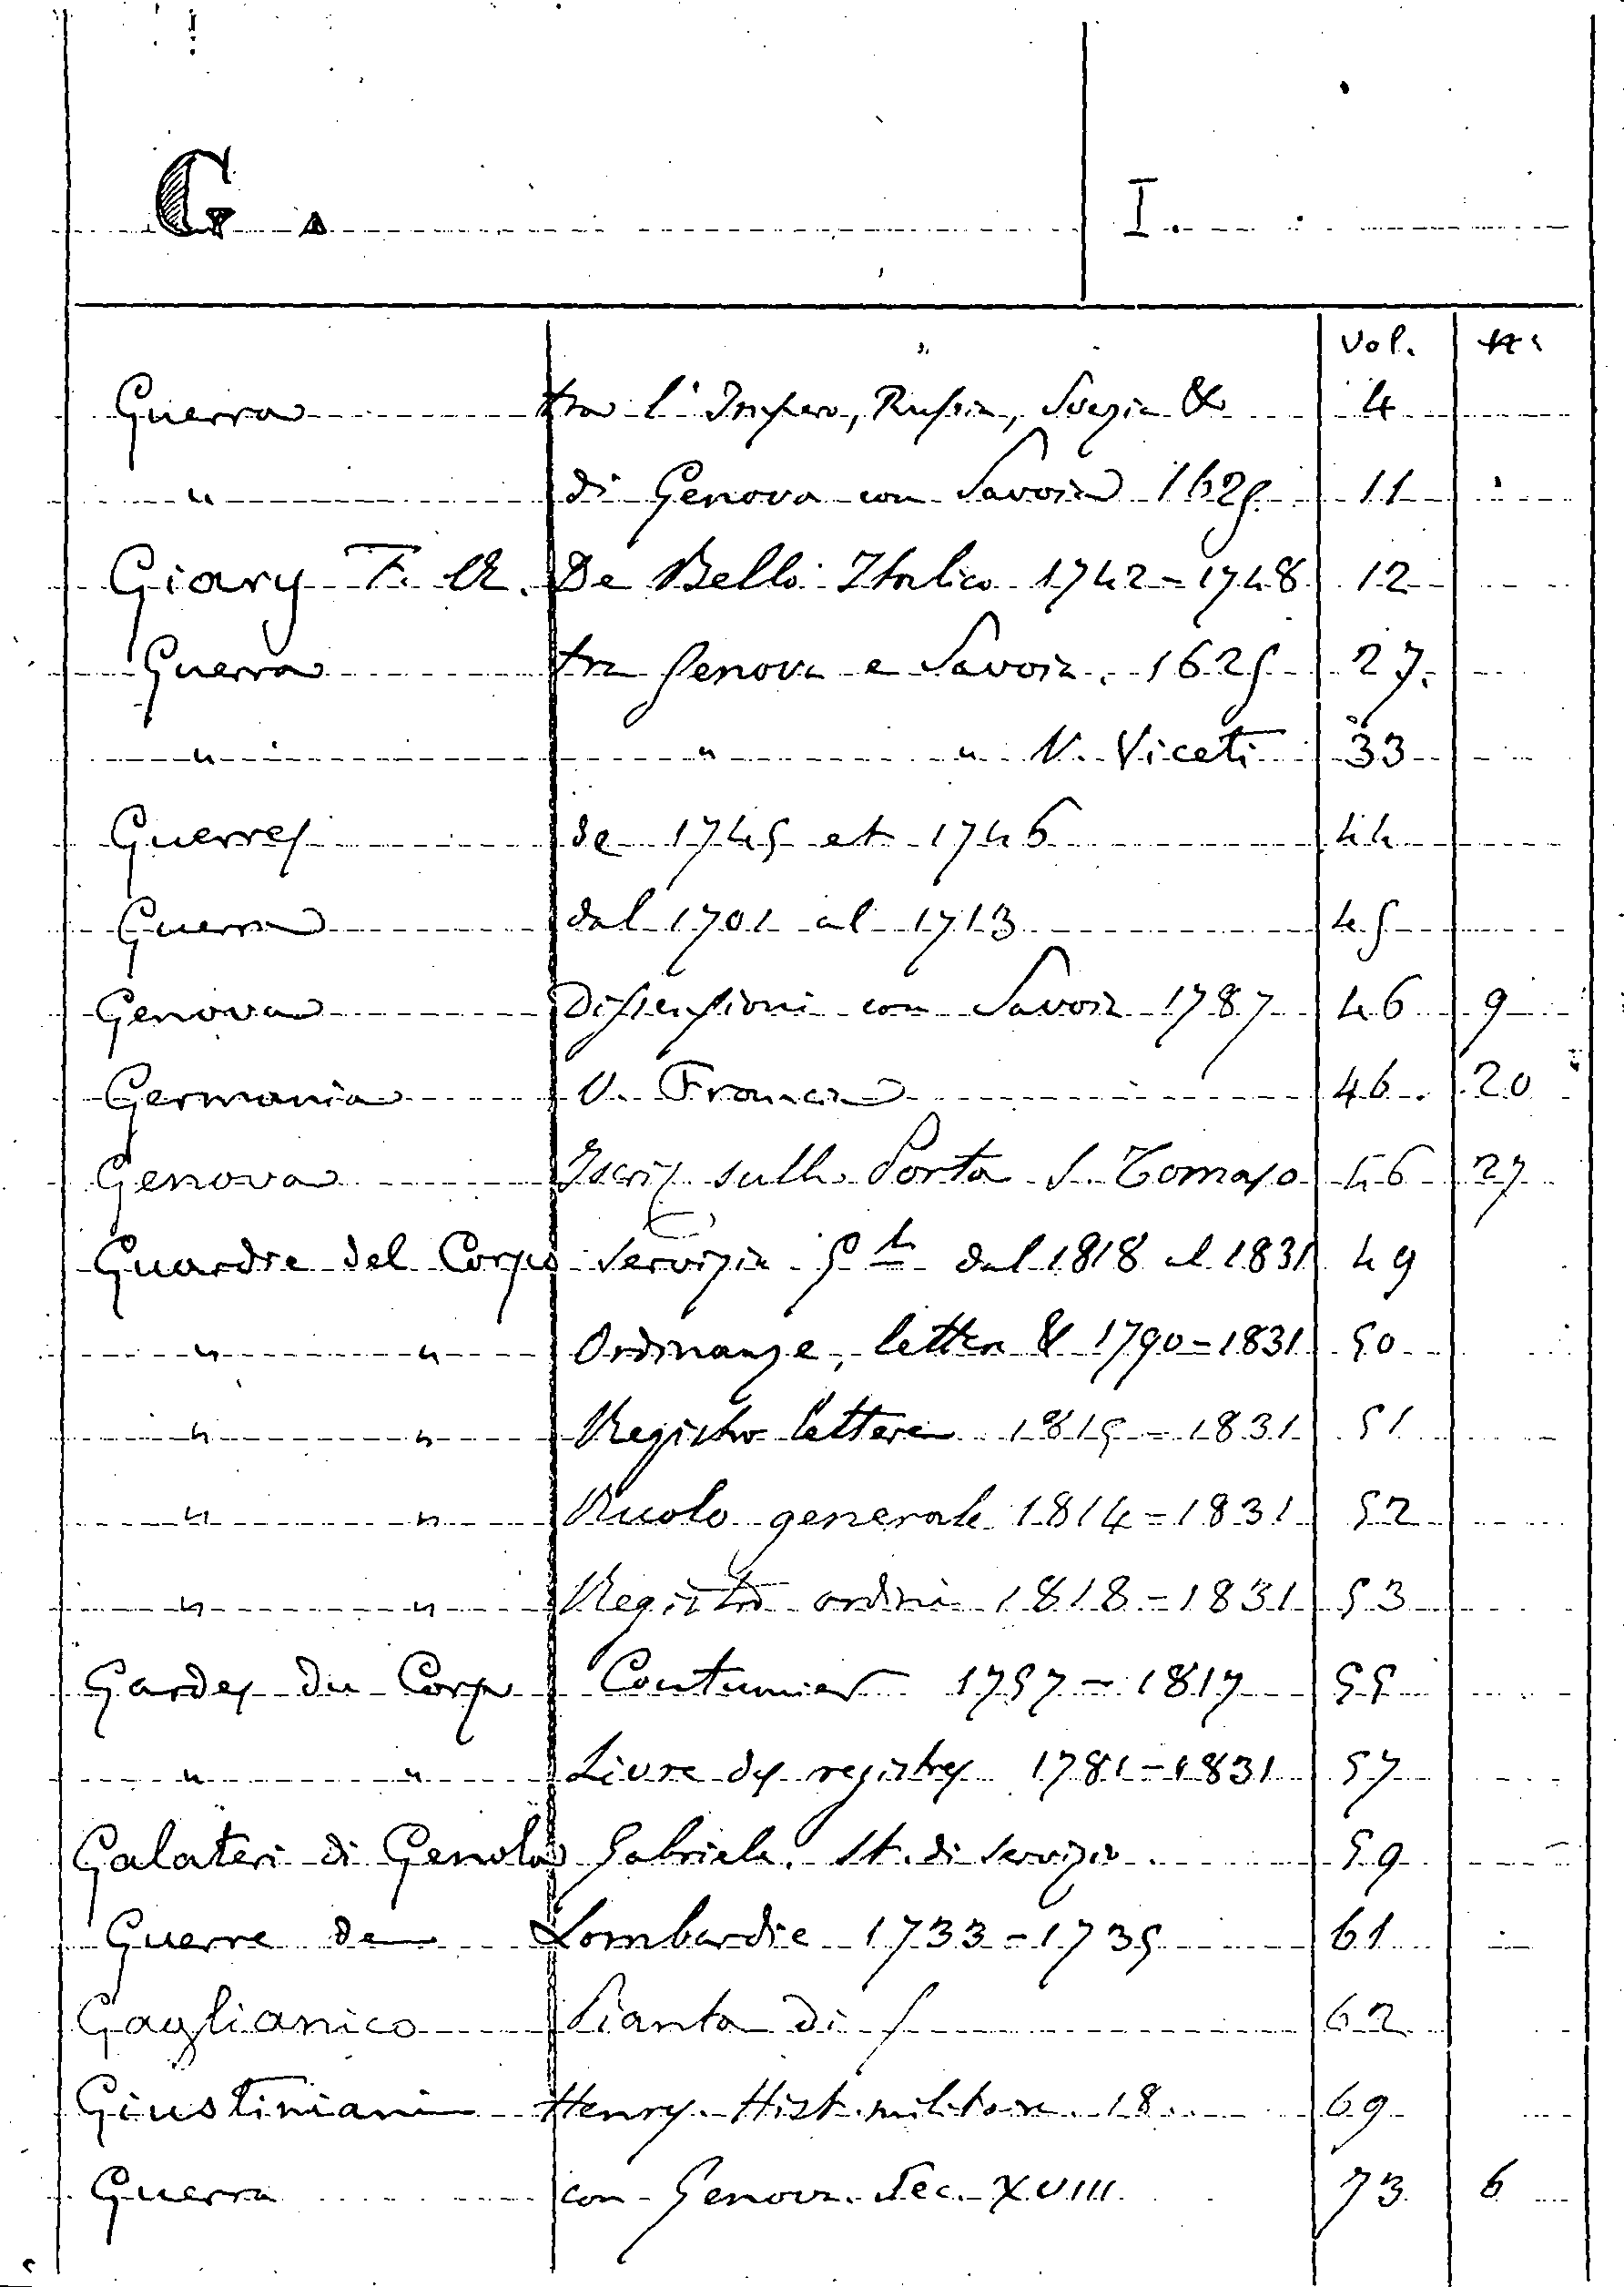 G.
I.
Vol. N:
Guerra tra l'Impero, Russia, Svezia & 4
" di Genova con Savoia 1625 11
Giary F. A. De Bello Italico 1742-1748 12
Guerra tra Genova e Savoia. 1625 27.
" " " V. Viceti 33
Guerres de 1745 et 1746 44
Guerra dal 1701 al 1713 45
Genova Dissensioni con Savoia 1787 46 9
Germania V. Francia 46. 20
Genova Iscriz. sulla Porta S. Tomaso 46 27
Guardie del Corpo Servizio dal 1818 al 1831 49
" " Ordinanze, lettere & 1790-1831 50
" " Registro lettere 1815-1831 51
" " Ruolo generale 1814-1831 52
" " Registro ordini 1818-1831 53
Gardes du Corps Coutumier 1757-1817 55
" " Livre des registres 1781-1831 57
Galateri di Genola Gabriele. St. di Servizio 59
Guerre de Lombardie 1733-1735 61
Gaglianico Pianta di 62
Giustiniani Henry. Hist. militaire 18.. 69
Guerra con Genova. Sec. XVIII 73 6